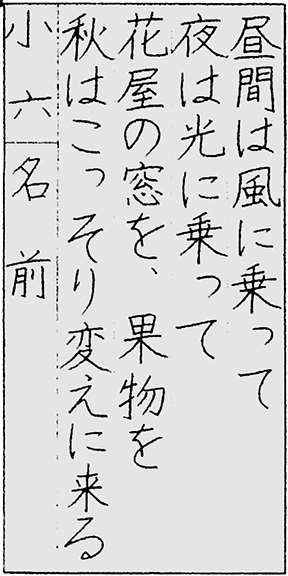 昼間は風に乗って
夜は光に乗って
花屋の窓を、果物を
秋はこっそり変えに来る
小六 名前